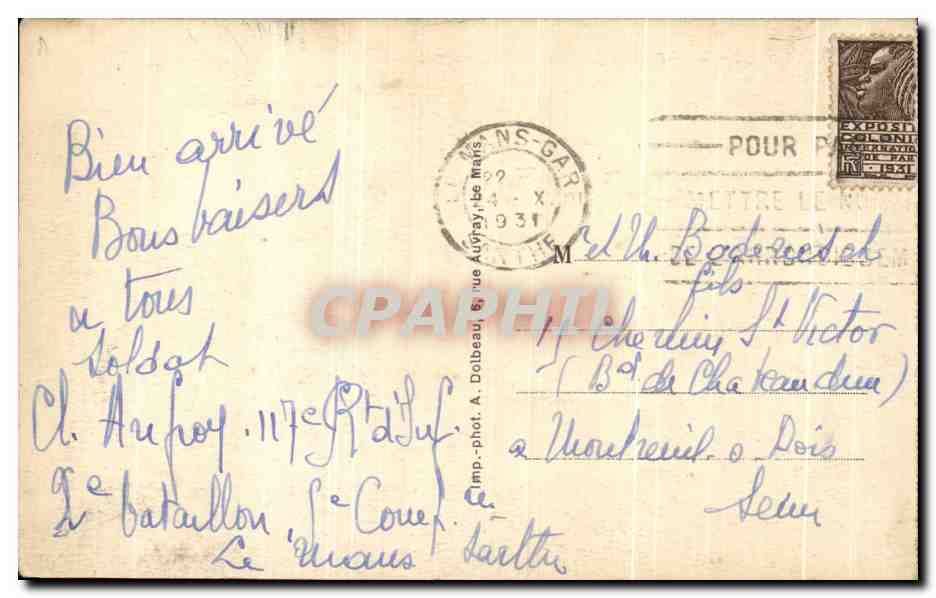 Bien arrivé
Bons baisers
a tous
soldat
Cl. Aufroy. 117e Rt d'Inf.
2e bataillon, 5e Comp. ie
Le Mans Sarthe
Imp.-phot. A. Dolbeau, 6, rue Auvray, Le Mans
LE MANS-GARE
22
4 - X
1931
SARTHE
POUR PA
METTRE LE NU
EXPOSITI
COLONI
INTERNATIO
DE PAR
1931
M et M.
fils
Chemin St Victor
(Bd de Chateaudun)
a Montreuil s Bois
Seine
CPAPHIL